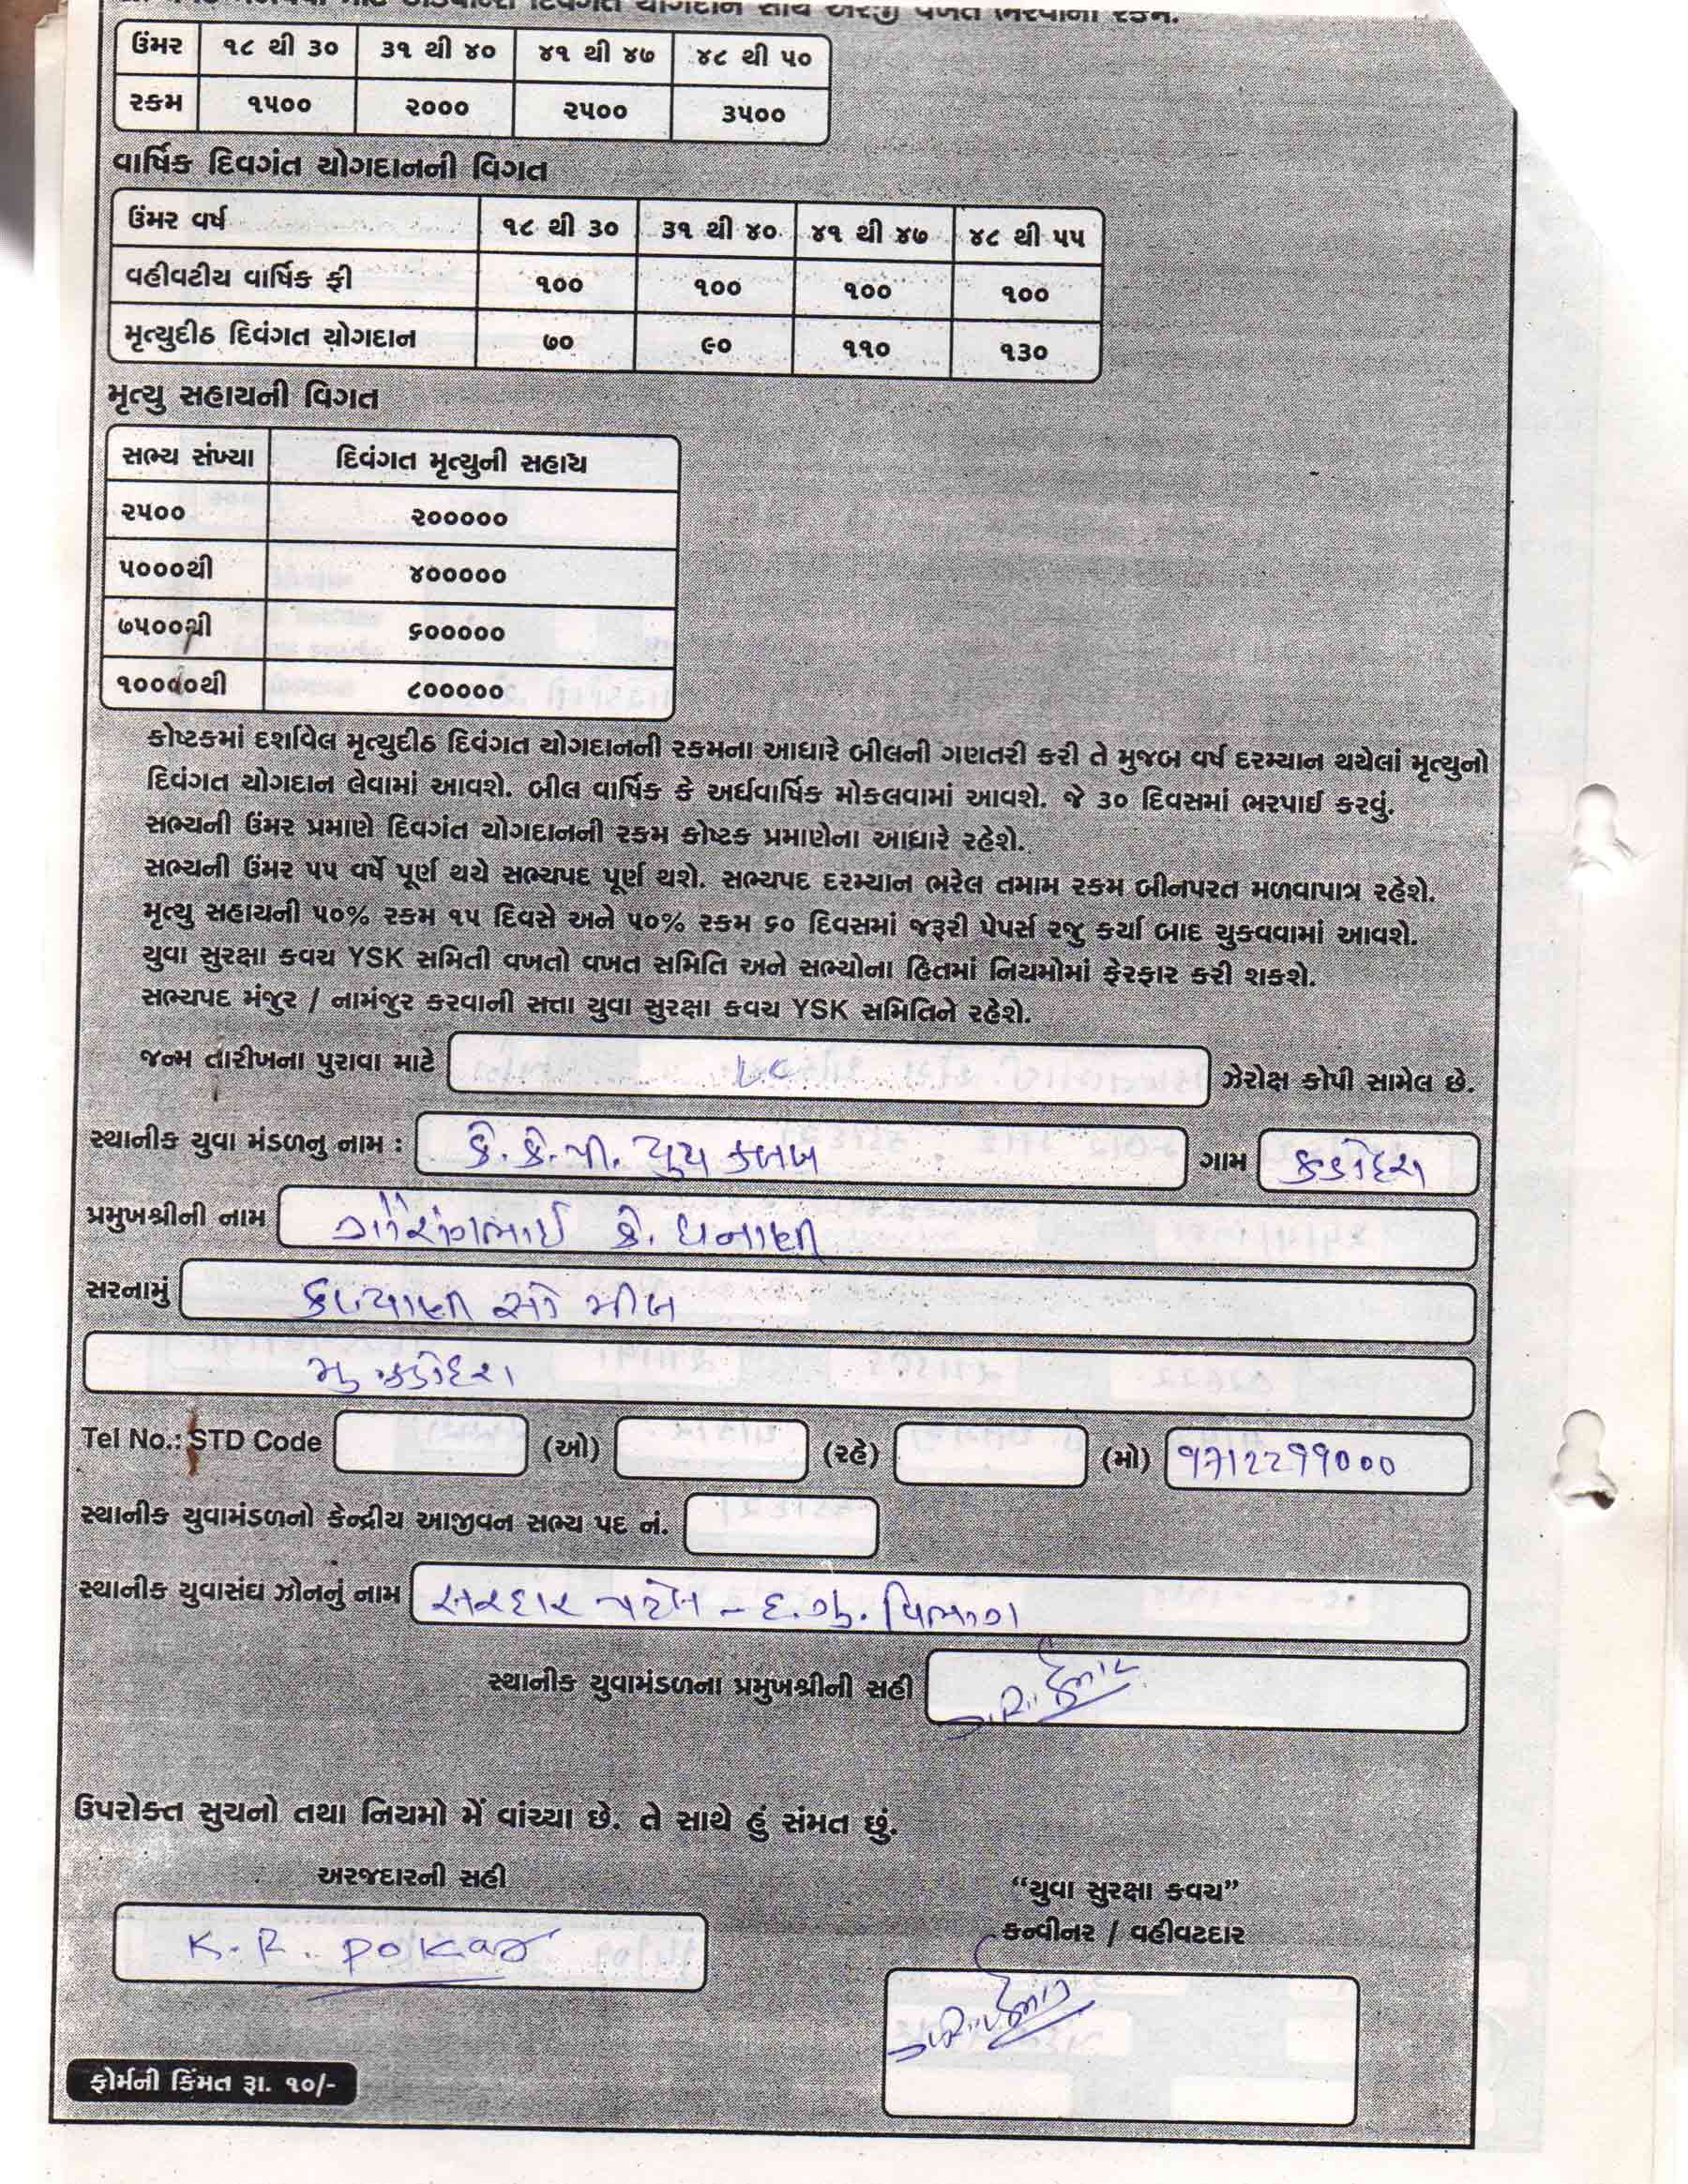 દિવંગત યોગદાન સાથે અરજી વખતે ભરવાની રકમ.
ઉંમર ૧૮ થી ૩૦ ૩૧ થી ૪૦ ૪૧ થી ૪૭ ૪૮ થી ૫૦
રકમ ૧૫૦૦ ૨૦૦૦ ૨૫૦૦ ૩૫૦૦
વાર્ષિક દિવગંત યોગદાનની વિગત
ઉંમર વર્ષ ૧૮ થી ૩૦ ૩૧ થી ૪૦ ૪૧ થી ૪૭ ૪૮ થી ૫૫
વહીવટીય વાર્ષિક ફી ૧૦૦ ૧૦૦ ૧૦૦ ૧૦૦
મૃત્યુદીઠ દિવંગત યોગદાન ૭૦ ૯૦ ૧૧૦ ૧૩૦
મૃત્યુ સહાયની વિગત
સભ્ય સંખ્યા દિવંગત મૃત્યુની સહાય
૨૫૦૦ ૨૦૦૦૦૦
૫૦૦૦થી ૪૦૦૦૦૦
૭૫૦૦થી ૬૦૦૦૦૦
૧૦૦૦૦થી ૮૦૦૦૦૦
કોષ્ટકમાં દર્શાવેલ મૃત્યુદીઠ દિવંગત યોગદાનની રકમના આધારે બીલની ગણતરી કરી તે મુજબ વર્ષ દરમ્યાન થયેલાં મૃત્યુનો
દિવંગત યોગદાન લેવામાં આવશે. બીલ વાર્ષિક કે અર્ધવાર્ષિક મોકલવામાં આવશે. જે ૩૦ દિવસમાં ભરપાઈ કરવું.
સભ્યની ઉંમર પ્રમાણે દિવગંત યોગદાનની રકમ કોષ્ટક પ્રમાણેના આધારે રહેશે.
સભ્યની ઉંમર ૫૫ વર્ષે પૂર્ણ થયે સભ્યપદ પૂર્ણ થશે. સભ્યપદ દરમ્યાન ભરેલ તમામ રકમ બીનપરત મળવાપાત્ર રહેશે.
મૃત્યુ સહાયની ૫૦% રકમ ૧૫ દિવસે અને ૫૦% રકમ ૬૦ દિવસમાં જરૂરી પેપર્સ રજુ કર્યા બાદ ચુકવવામાં આવશે.
યુવા સુરક્ષા કવચ YSK સમિતી વખતો વખત સમિતિ અને સભ્યોના હિતમાં નિયમોમાં ફેરફાર કરી શકશે.
સભ્યપદ મંજુર / નામંજુર કરવાની સત્તા યુવા સુરક્ષા કવચ YSK સમિતિને રહેશે.
જન્મ તારીખના પુરાવા માટે ઝેરોક્ષ કોપી સામેલ છે.
સ્થાનીક યુવા મંડળનુ નામ : કે.કે.પી. યુથ કલબ ગામ કડોદરા
પ્રમુખશ્રીની નામ ગૌરાંગભાઈ કે. ધનાણી
સરનામું કલ્યાણ સો મીલ
મુ.કડોદરા
Tel No.: STD Code (ઓ) (રહે) (મો) ૧712299000
સ્થાનીક યુવામંડળનો કેન્દ્રીય આજીવન સભ્ય પદ નં.
સ્થાનીક યુવાસંઘ ઝોનનું નામ સરદાર પટેલ - દ.ગુ. વિભાગ
સ્થાનીક યુવામંડળના પ્રમુખશ્રીની સહી
ઉપરોક્ત સુચનો તથા નિયમો મેં વાંચ્યા છે. તે સાથે હું સંમત છું.
અરજદારની સહી
K.R. Pokar
“યુવા સુરક્ષા કવચ”
કન્વીનર / વહીવટદાર
ફોર્મની કિંમત રૂા. ૧૦/-